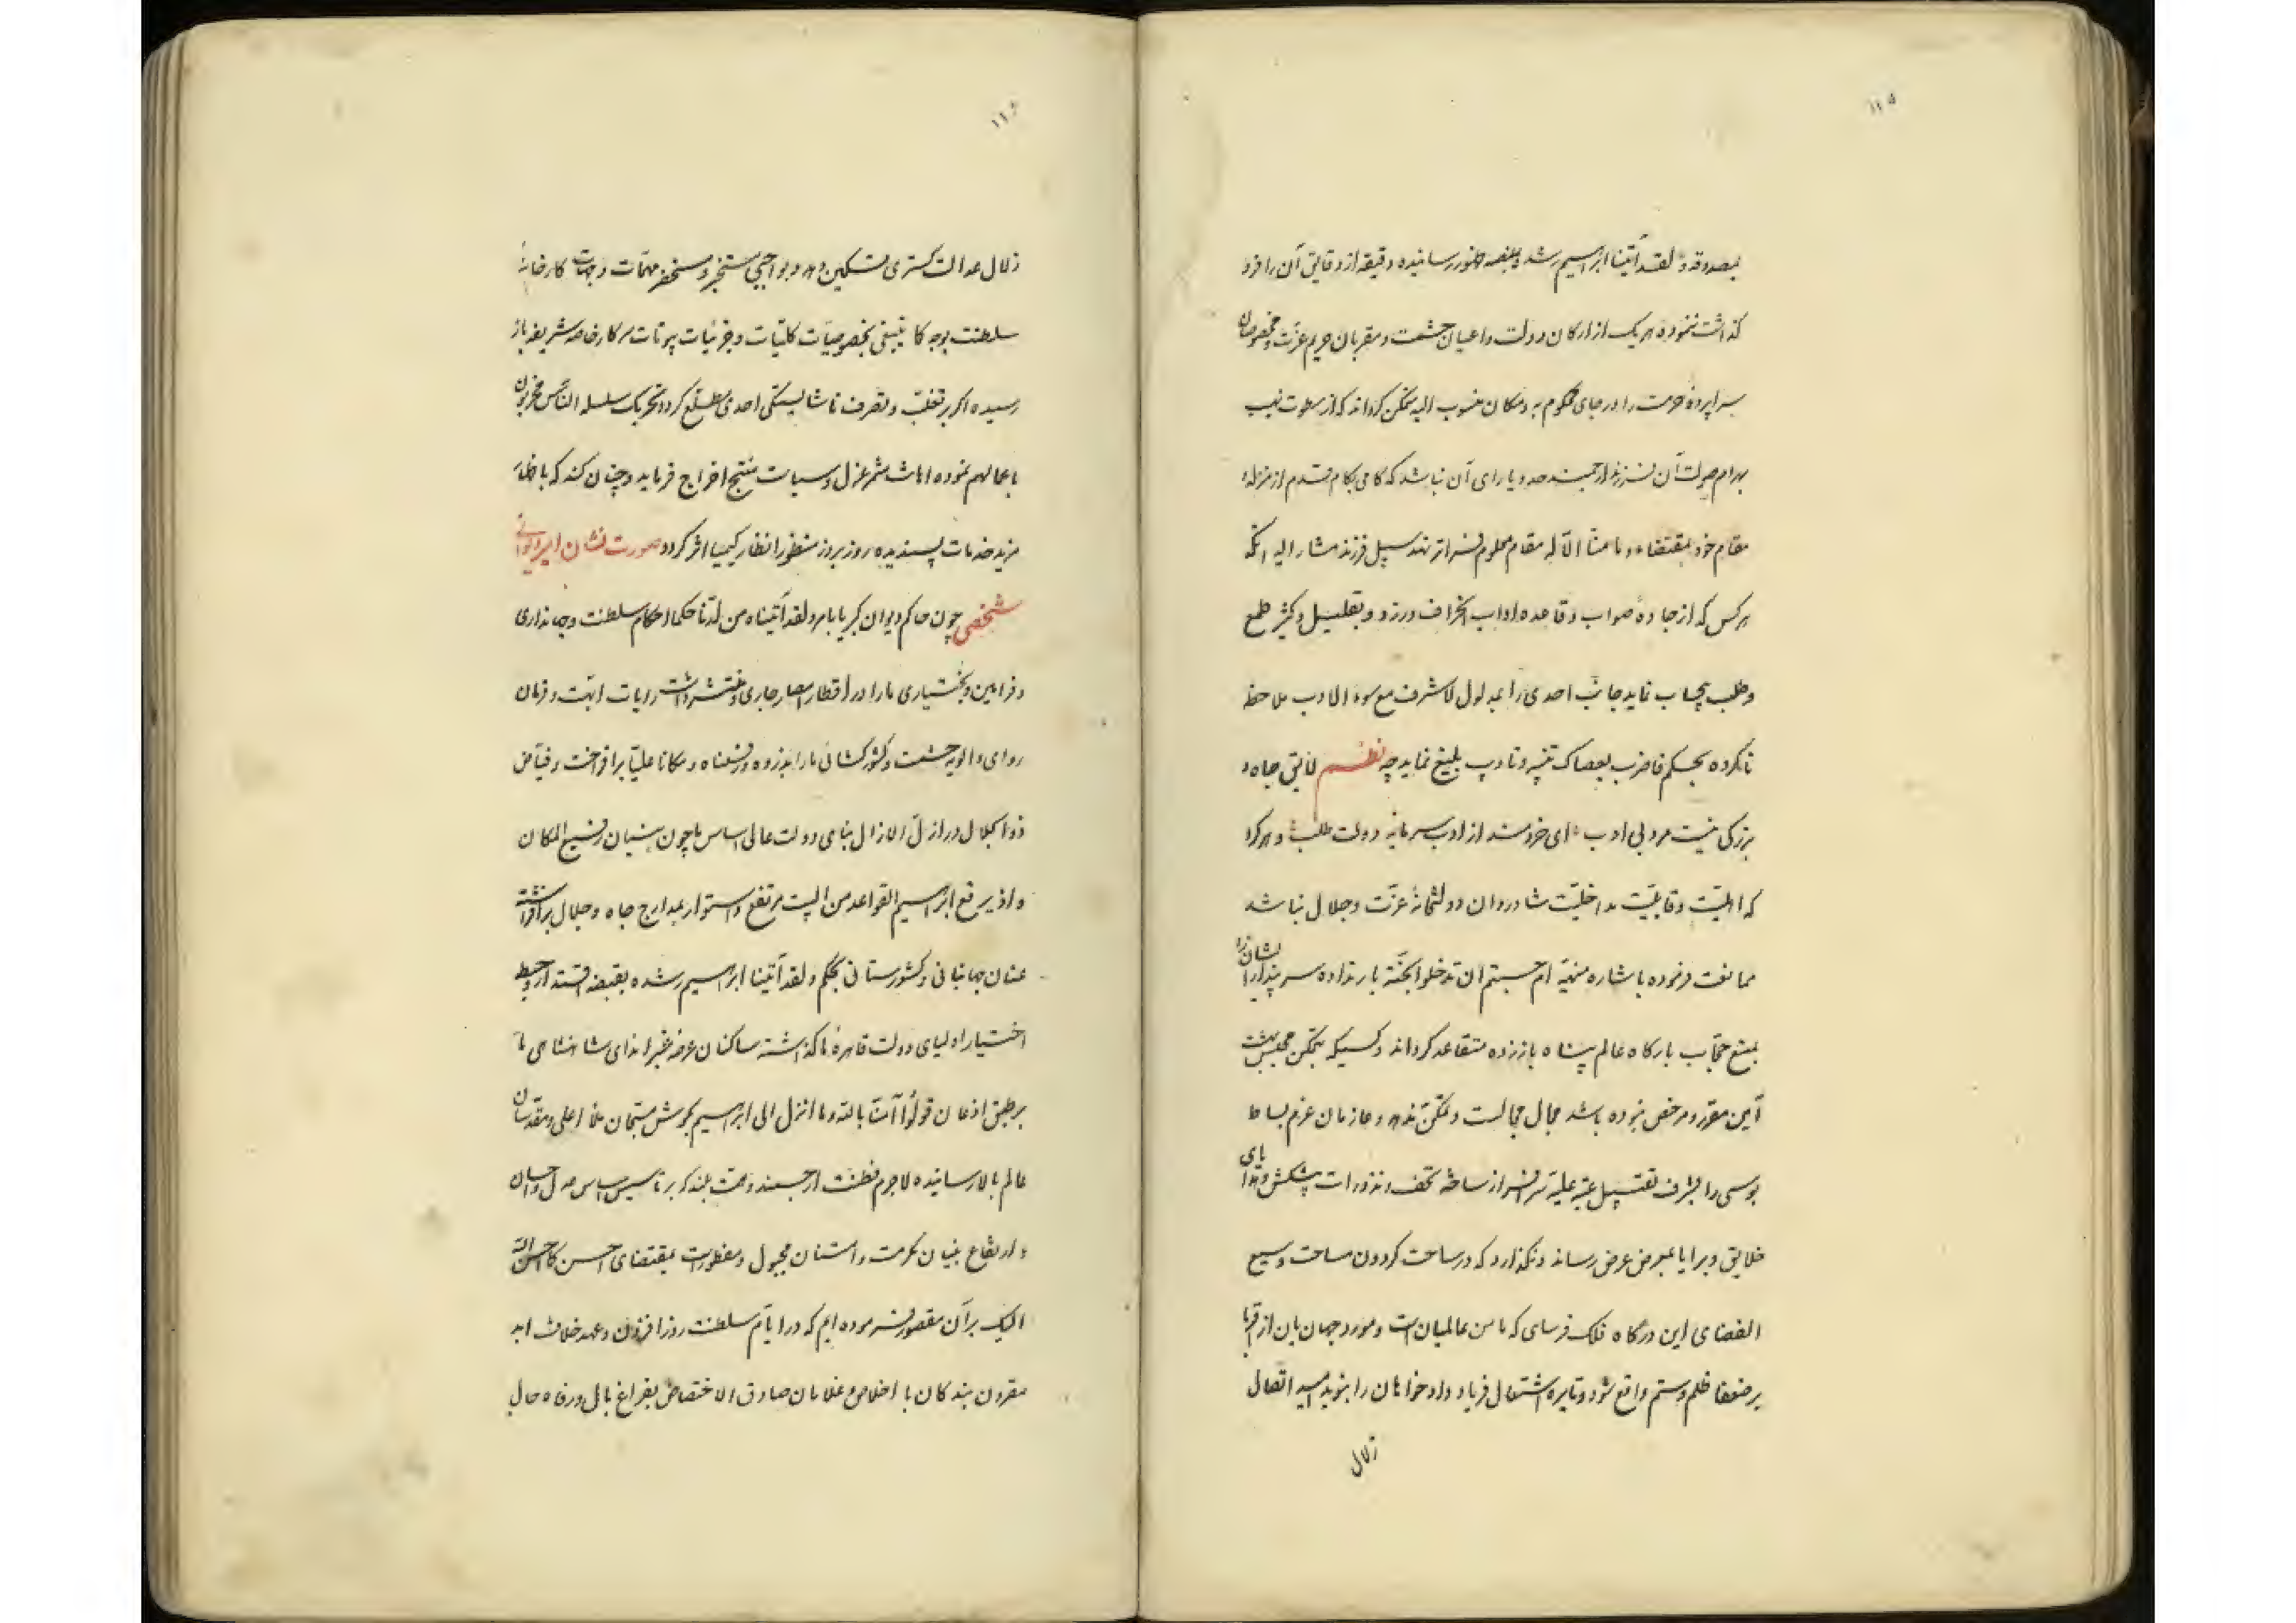 ۱۱۵
بمصدوقهٔ و لقد آتینا ابراهیم رشده بمنصه ظهور رسانیده دقیقه از دقایق آن را فرو
گذاشت ننموده هر یک از ارکان دولت و اعیان حشمت و مقربان حریم عزت و مخصوصان
سراپرده حرمت را در جای محکوم به و مکان منسوب الیه متمکن گرداند که از سطوت نهیب
بهرام صولت آن فرزند ارجمند احدی را یارای آن نباشد که گامی بکام قدم از منزله و
مقام خود بمقتضاء و ما منا الا له مقام معلوم فراتر نهد سبیل فرزند مشار الیه آنکه
هر کس که از جادهٔ صواب و قاعده اداب انحراف ورزد و بتقلیل و تکثیر طمع
و طلب بیحساب نماید جانب احدی را بمدلول لا شرف مع سوء الادب ملاحظه
ناکرده بحکم فاضرب بعصاک تنبیه و تادیب بلیغ نماید چه نظم لایق جاه و
بزرگی نیست مرد بی ادب ای خردمند از ادب سرمایه دولت طلب و هر کرا
که اهلیت و قابلیت مداخلیت شادروان دولتخانهٔ عزت و جلال نباشد
ممانعت فرموده باشاره منهیه ام حسبتم ان تدخلوا الجنة بار نداده سر پندار ایشان را
بمنع حجاب بارگاه عالم پناه باز زده متقاعد گرداند و کسیکه بتمکن مجلس بهشت
آیین مقرر و مرخص نبوده باشد مجال مجالست و تمکن ندهد و عازمان عزم بساط
بوسی را بشرف تقبیل عتبه علیه سرافراز ساخته تحف و نذورات پیشکش و هدایای
خلایق و برایا بمعرض عرض رساند و نگذارد که در ساحت گردون مساحت وسیع
الفضای این درگاه فلک فرسای که مامن عالمیان است و مورد جهانیان از اقربا
بر ضعفا ظلم و ستم واقع شود و نایره اشتعال فریاد دادخواهان را بنوید امید اتصال
زلال
۱۱۶
زلال عدالت گستری تسکین دهد و بواجبی مستخبر و مستحضر مهمات و جهات کارخانهٔ
سلطنت بوجه کما ینبغی بخصوصیات کلیات و جزئیات بیوتات سرکار خاصه شریفه باز
رسیده اگر بر تغلب و تصرف ناشایستگی احدی مطلع گردد تحریک سلسله الناس مجزیون
باعمالهم نموده مثمر عزل و سیاست منتج اخراج فرماید و چنان کند که باظهار
مزید خدمات پسندیده روز بروز منظور انظار کیمیا اثر گردد صورت نشان امیر دیوانی
شخصی چون حاکم دیوان کبریا بامر و لقد آتیناه من لدنا حکما احکام سلطنت و جهانداری
و فرامین و بختیاری ما را در اقطار امصار جاری و منتشر داشت رایات ابهت و فرمان
روای و الویه حشمت و کشورگشائی ما را بذروه و رفعناه مکانا علیا برافراخت و فیاض
ذوالجلال در ازل الازال بنای دولت عالی اساس ما چون بنیان رفیع المکان
و اذ یرفع ابراهیم القواعد من البیت مرتفع و استوار بمدارج جاه و جلال برافراشته
عنان جهانبانی و کشورستانی بحکم و لقد آتینا ابراهیم رشده بقبضه اقتدار و حیطه
اختیار اولیای دولت قاهره ما گذاشته ساکنان عرصه غبرا ندای شاهنشاهی ما
بر طبق اذعان قولوا آمنا بالله و ما انزل الی ابراهیم بگوش مستمعان ملأ اعلی و مقدسان
عالم بالا رسانیده لاجرم فطنت ارجمند و همت بلند که بر تاسیس اساس عدل و احسان
و ارتفاع بنیان مکرمت و امتنان مجبول و مفطور است بمقتضای احسن کما احسن الله
الیک بر آن مقصور فرموده ایم که در ایام سلطنت روزافزون و عهد خلافت ابد
مقرون بندگان با اخلاص و غلامان صادق الاختصاص بفراغ بال و رفاه حال